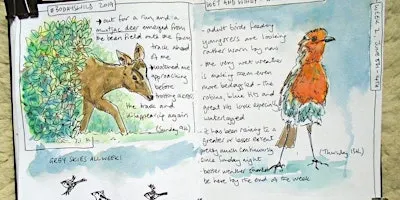 #30DAYSWILD 2019
→ out for a run and a
muntjac deer emerged from
the bean field onto the farm
track ahead
of me
watched me
approaching
before
bolting across
the track and
disappearing again
(Sunday 9th)
GREY SKIES ALL WEEK!
WET AND WINDY
- adult birds feeding
youngsters are looking
rather worn by now
- the very wet weather
is making them even
more bedraggled - the
robins, blue tits and
great tits look especially
waterlogged
- it has been raining to a
greater or lesser extent
pretty much continuously
since Sunday night
- better weather should
be here by the end of the week
(Thursday 13th)
WEEK 2. JUNE 8th - 14th